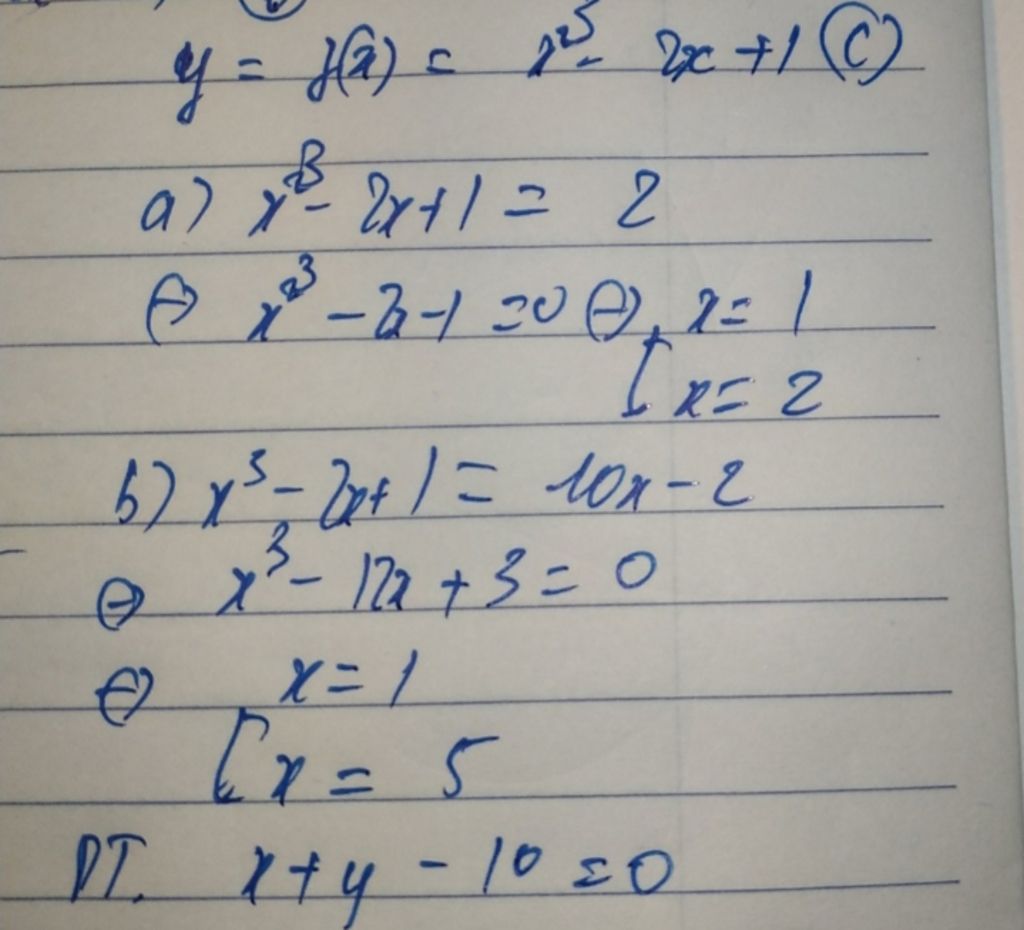 y = f(x) = x³ - 2x + 1 (C)
a) x³ - 2x + 1 = 2
⇔ x³ - 2x - 1 = 0 ⇔ [ x = 1
x = 2
b) x³ - 2x + 1 = 10x - 2
⇔ x³ - 12x + 3 = 0
⇔ [ x = 1
x = 5
PT. x + y - 10 = 0